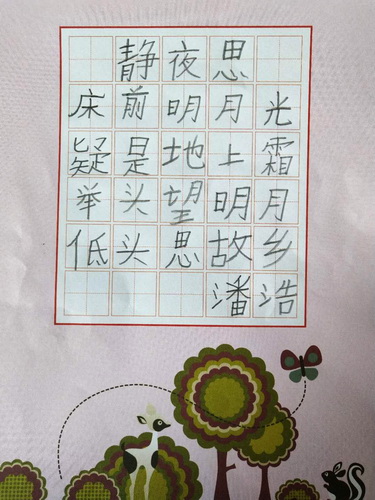 静夜思
床前明月光
疑是地上霜
举头望明月
低头思故乡
潘浩